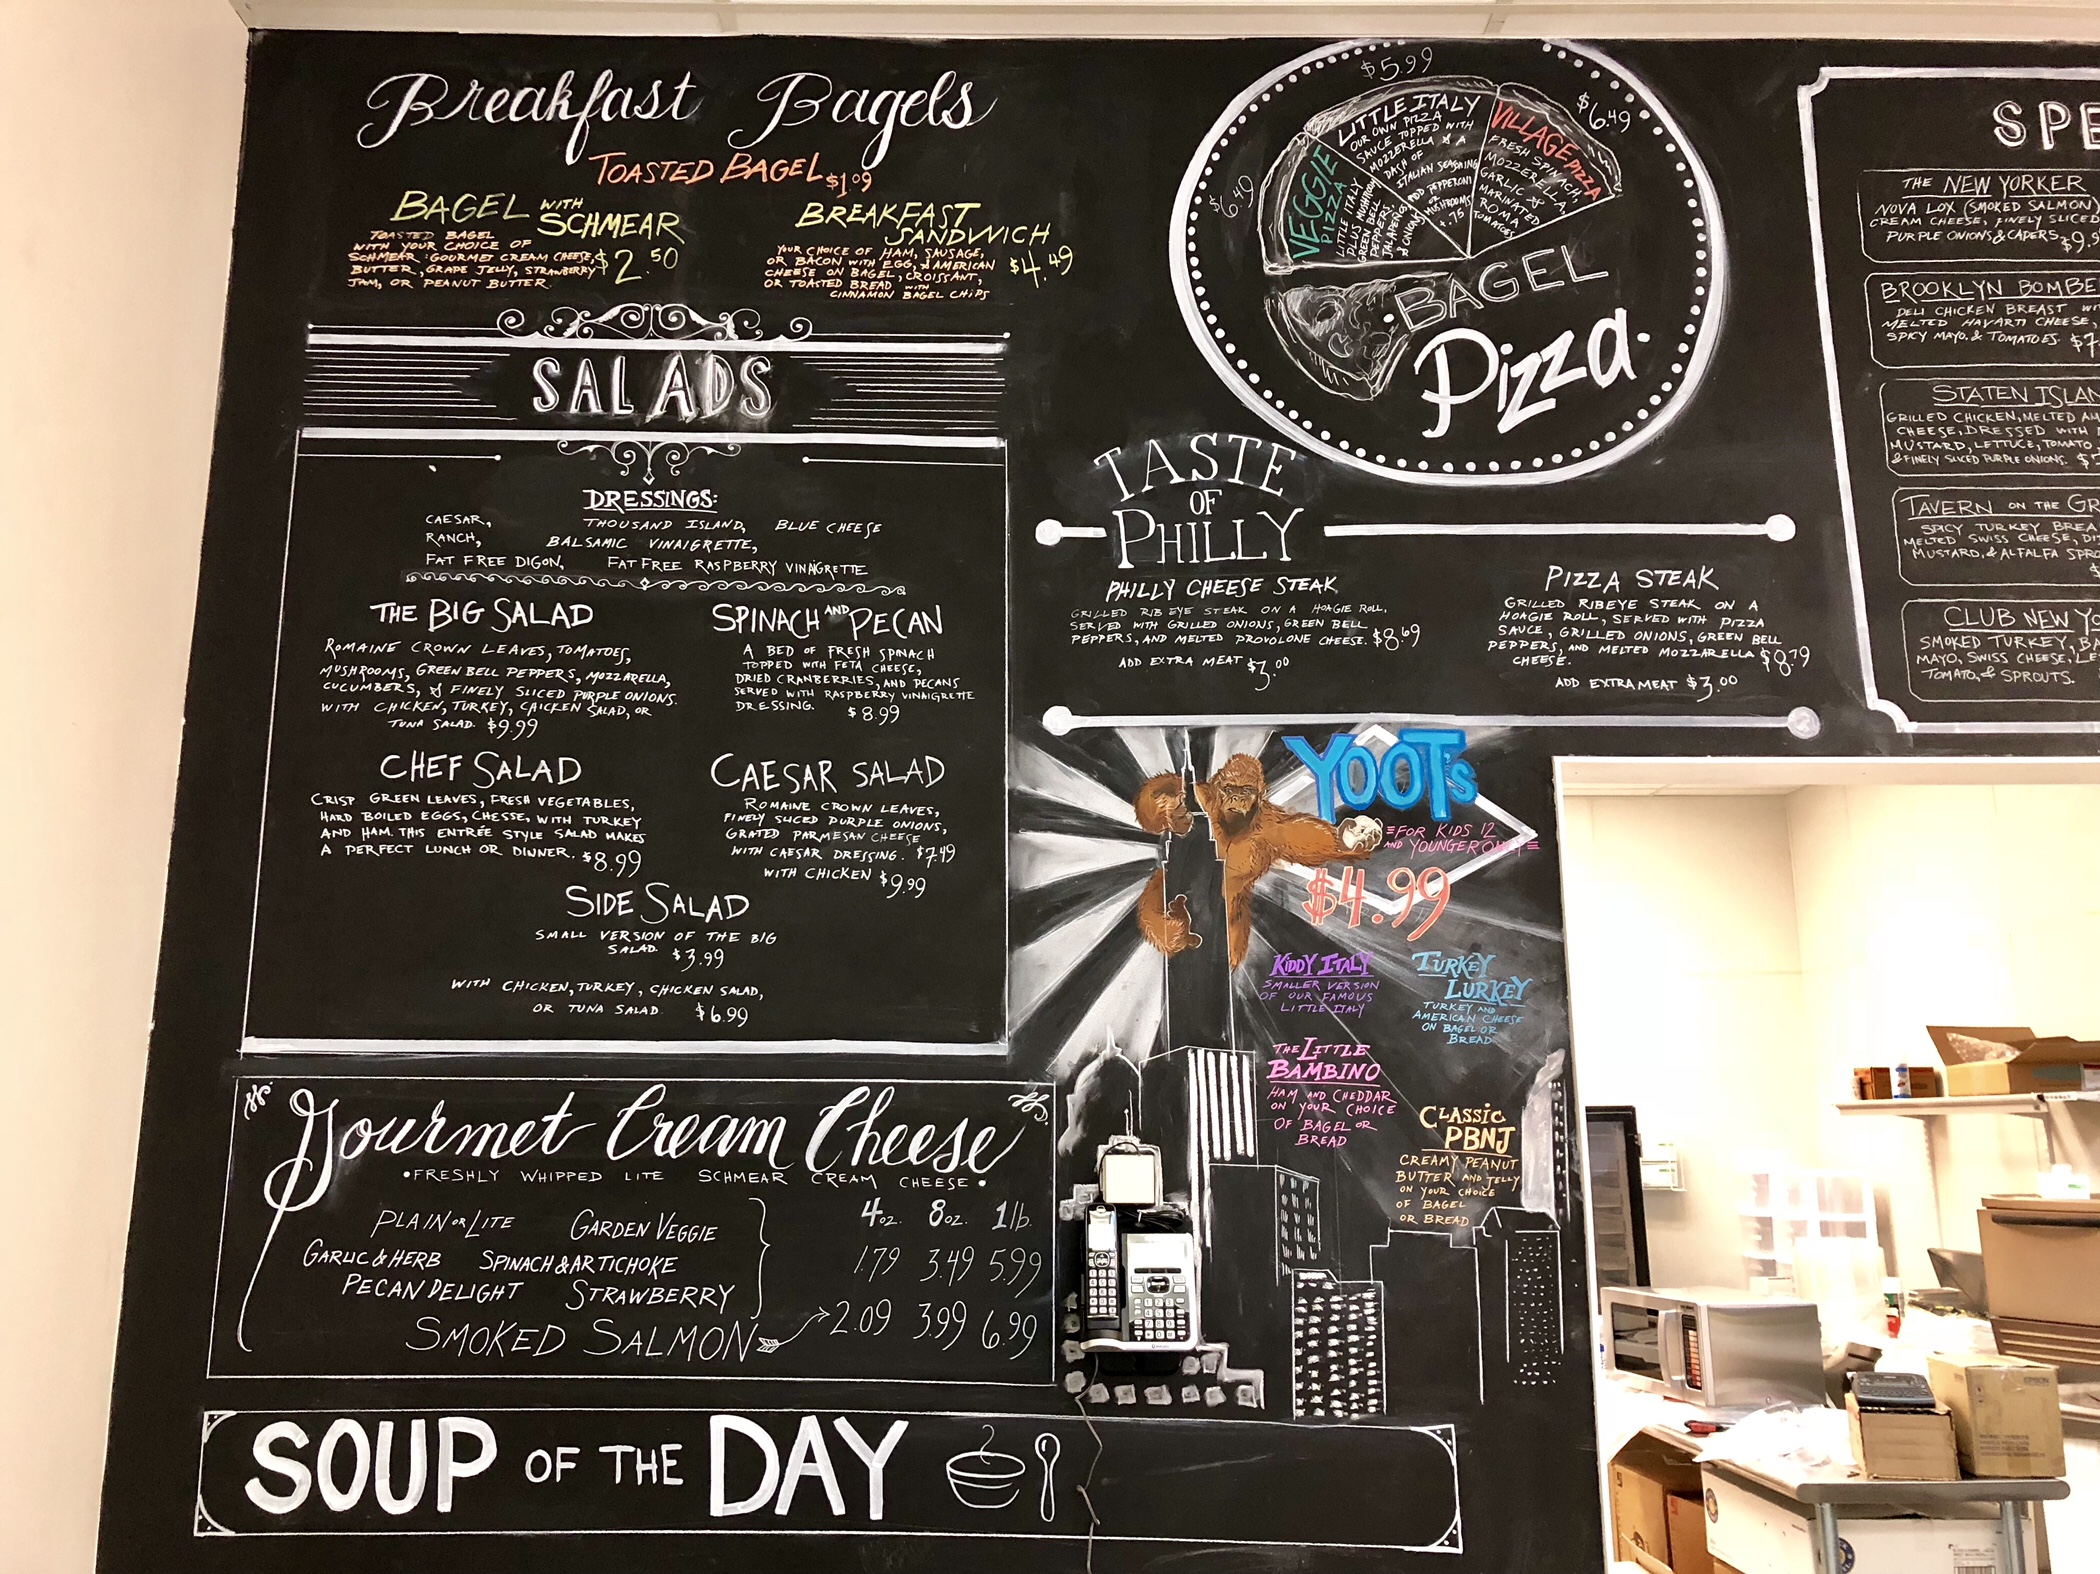 Breakfast Bagels
TOASTED BAGEL $1.09
BAGEL WITH SCHMEAR
TOASTED BAGEL
WITH YOUR CHOICE OF
SCHMEAR: GOURMET CREAM CHEESE,
BUTTER, GRAPE JELLY, STRAWBERRY
JAM, OR PEANUT BUTTER.
$2.50
BREAKFAST
SANDWICH
YOUR CHOICE OF HAM, SAUSAGE,
OR BACON WITH EGG, & AMERICAN
CHEESE ON BAGEL, CROISSANT,
OR TOASTED BREAD WITH
CINNAMON BAGEL CHIPS
$4.49
SALADS
DRESSINGS:
CAESAR, THOUSAND ISLAND, BLUE CHEESE
RANCH, BALSAMIC VINAIGRETTE,
FAT FREE DIGON, FAT FREE RASPBERRY VINAIGRETTE
THE BIG SALAD
ROMAINE CROWN LEAVES, TOMATOES,
MUSHROOMS, GREEN BELL PEPPERS, MOZZARELLA,
CUCUMBERS, & FINELY SLICED PURPLE ONIONS.
WITH CHICKEN, TURKEY, CHICKEN SALAD, OR
TUNA SALAD. $9.99
SPINACH AND PECAN
A BED OF FRESH SPINACH
TOPPED WITH FETA CHEESE,
DRIED CRANBERRIES, AND PECANS
SERVED WITH RASPBERRY VINAIGRETTE
DRESSING. $8.99
CHEF SALAD
CRISP GREEN LEAVES, FRESH VEGETABLES,
HARD BOILED EGGS, CHESSE, WITH TURKEY
AND HAM. THIS ENTRÉE STYLE SALAD MAKES
A PERFECT LUNCH OR DINNER. $8.99
CAESAR SALAD
ROMAINE CROWN LEAVES,
FINELY SLICED PURPLE ONIONS,
GRATED PARMESAN CHEESE
WITH CAESAR DRESSING. $7.49
WITH CHICKEN $9.99
SIDE SALAD
SMALL VERSION OF THE BIG
SALAD. $3.99
WITH CHICKEN, TURKEY, CHICKEN SALAD,
OR TUNA SALAD. $6.99
Gourmet Cream Cheese
•FRESHLY WHIPPED LITE SCHMEAR CREAM CHEESE•
4oz. 8oz. 1lb.
PLAIN OR LITE GARDEN VEGGIE
GARLIC & HERB SPINACH & ARTICHOKE
PECAN DELIGHT STRAWBERRY
1.79 3.49 5.99
SMOKED SALMON 2.09 3.99 6.99
SOUP OF THE DAY
$5.99
LITTLE ITALY
OUR OWN PIZZA
SAUCE TOPPED WITH
MOZZERELLA & A
DASH OF
ITALIAN SEASONING
ADD PEPPERONI
OR
MUSHROOMS
+.75
$6.49
VILLAGE PIZZA
FRESH SPINACH,
MOZZERELLA,
GARLIC, &
MARINATED
ROMA
TOMATOES
$6.49
VEGGIE
PIZZA
LITTLE ITALY
PLUS MUSHROOM
GREEN BELL
PEPPERS,
JALAPENOS
& ONIONS
BAGEL
Pizza
TASTE
OF
PHILLY
PHILLY CHEESE STEAK
GRILLED RIB EYE STEAK ON A HOAGIE ROLL,
SERVED WITH GRILLED ONIONS, GREEN BELL
PEPPERS, AND MELTED PROVOLONE CHEESE. $8.69
ADD EXTRA MEAT $3.00
PIZZA STEAK
GRILLED RIBEYE STEAK ON A
HOAGIE ROLL, SERVED WITH PIZZA
SAUCE, GRILLED ONIONS, GREEN BELL
PEPPERS, AND MELTED MOZZARELLA
CHEESE. $8.79
ADD EXTRA MEAT $3.00
YOOT's
FOR KIDS 12
AND YOUNGER ONLY
$4.99
KIDDY ITALY
SMALLER VERSION
OF OUR FAMOUS
LITTLE ITALY
TURKEY
LURKEY
TURKEY AND
AMERICAN CHEESE
ON BAGEL OR
BREAD
THE LITTLE
BAMBINO
HAM AND CHEDDAR
ON YOUR CHOICE
OF BAGEL OR
BREAD
CLASSIC
PBNJ
CREAMY PEANUT
BUTTER AND JELLY
ON YOUR CHOICE
OF BAGEL
OR BREAD
SPE
THE NEW YORKER
NOVA LOX (SMOKED SALMON)
CREAM CHEESE, FINELY SLICED
PURPLE ONIONS & CAPERS. $9.9
BROOKLYN BOMBE
DELI CHICKEN BREAST WI
MELTED HAVARTI CHEESE
SPICY MAYO. & TOMATOES. $7
STATEN ISLAN
GRILLED CHICKEN, MELTED AM
CHEESE, DRESSED WITH
MUSTARD, LETTUCE, TOMATO
& FINELY SLICED PURPLE ONIONS. $
TAVERN ON THE GR
SPICY TURKEY BREA
MELTED SWISS CHEESE, DI
MUSTARD, & ALFALFA SPRO
$
CLUB NEW YO
SMOKED TURKEY, BA
MAYO, SWISS CHEESE, LE
TOMATO, & SPROUTS.